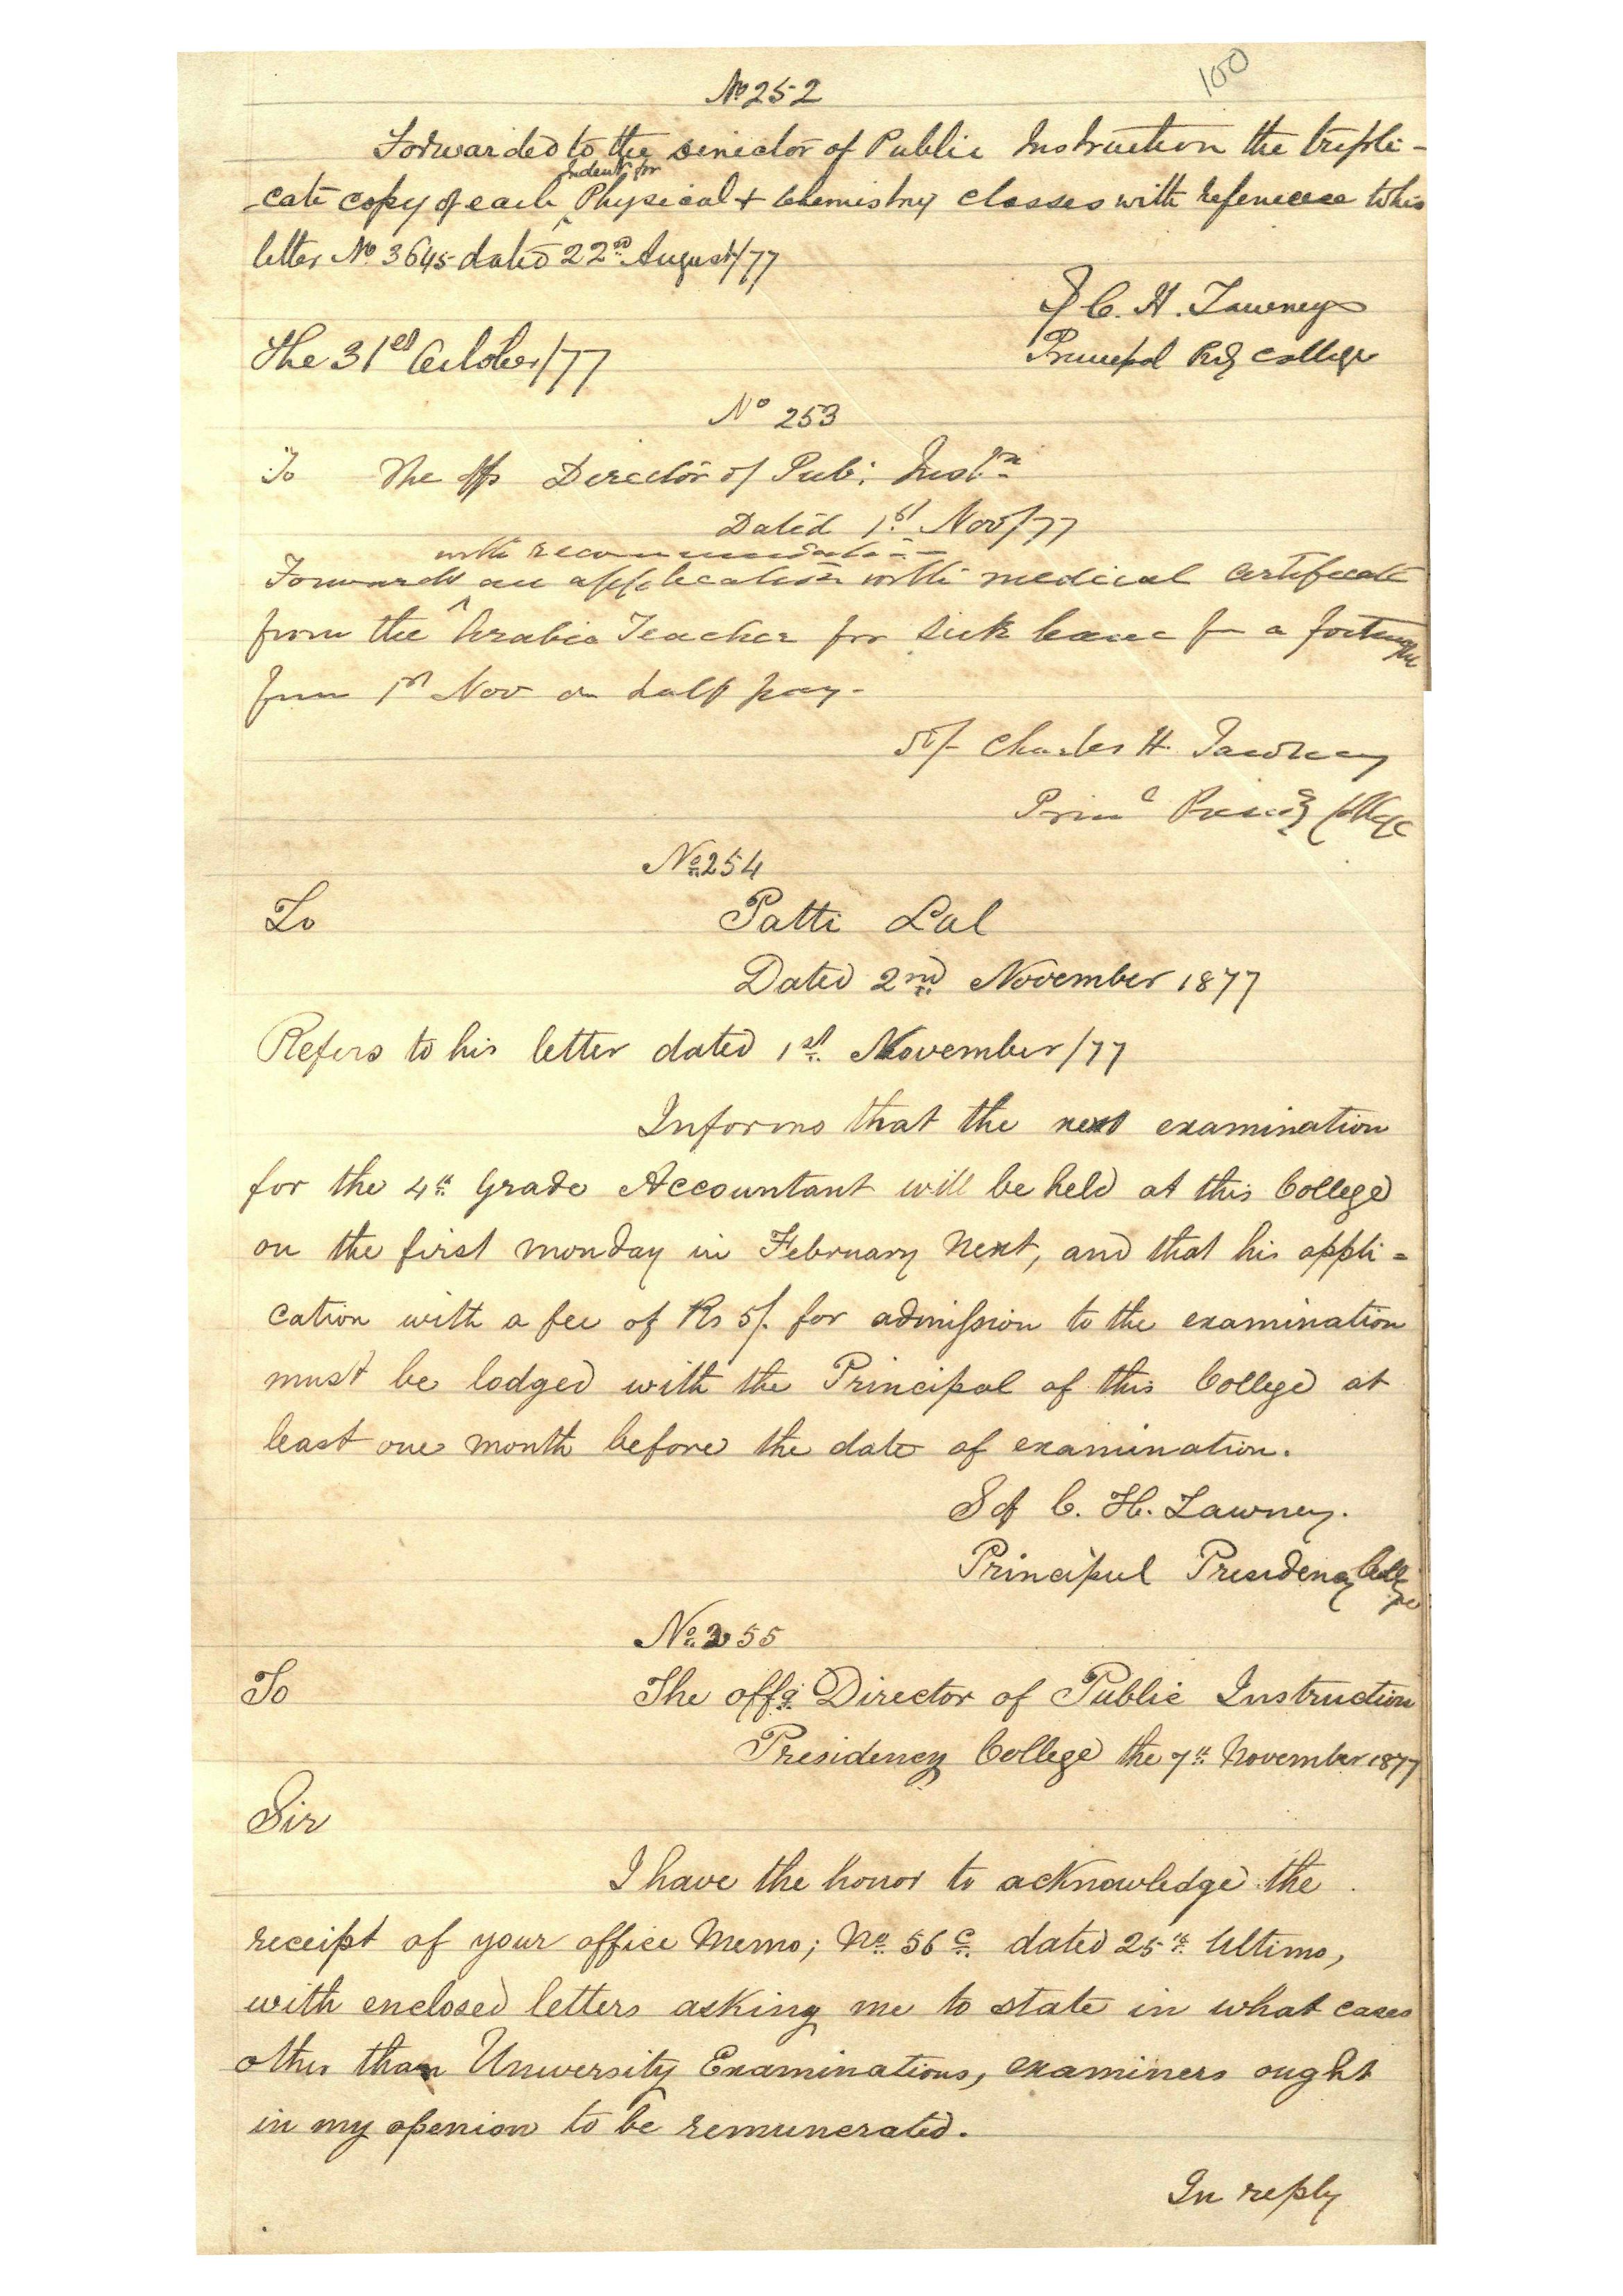 100
No 252
Forwarded to the Director of Public Instruction the tripli-
Indent for
cate copy of each ^ Physical + Chemistry classes with reference to his
letter No 3645 dated 22nd August/77
C. H. Tawney
The 31st October/77
Principal College
No 253
To The Director of Pub: Instn
Dated 1st Nov/77
with recommendation
Forwards ^ an application with medical certificate
from the Arabic Teacher for sick leave for a fortnight
from 1st Nov on half pay-
Charles H. Tawney
Prinl College
No 254
To Patti Lal
Dated 2nd November 1877
Refers to his letter dated 1st November/77
Informs that the next examination
for the 4th Grade Accountant will be held at this College
on the first monday in February Next, and that his appli=
cation with a fee of Rs 5/. for admission to the examination
must be lodged with the Principal of this College at
least one month before the date of examination.
Sd C. H. Tawney.
Principal Presidency College
No. 255
To The offg Director of Public Instruction
Presidency College the 7th November 1877
Sir
I have the honor to acknowledge the
receipt of your office Memo; No 56 C dated 25th Ultimo,
with enclosed letters asking me to state in what cases
other than University Examinations, examiners ought
in my openion to be remunerated.
In reply